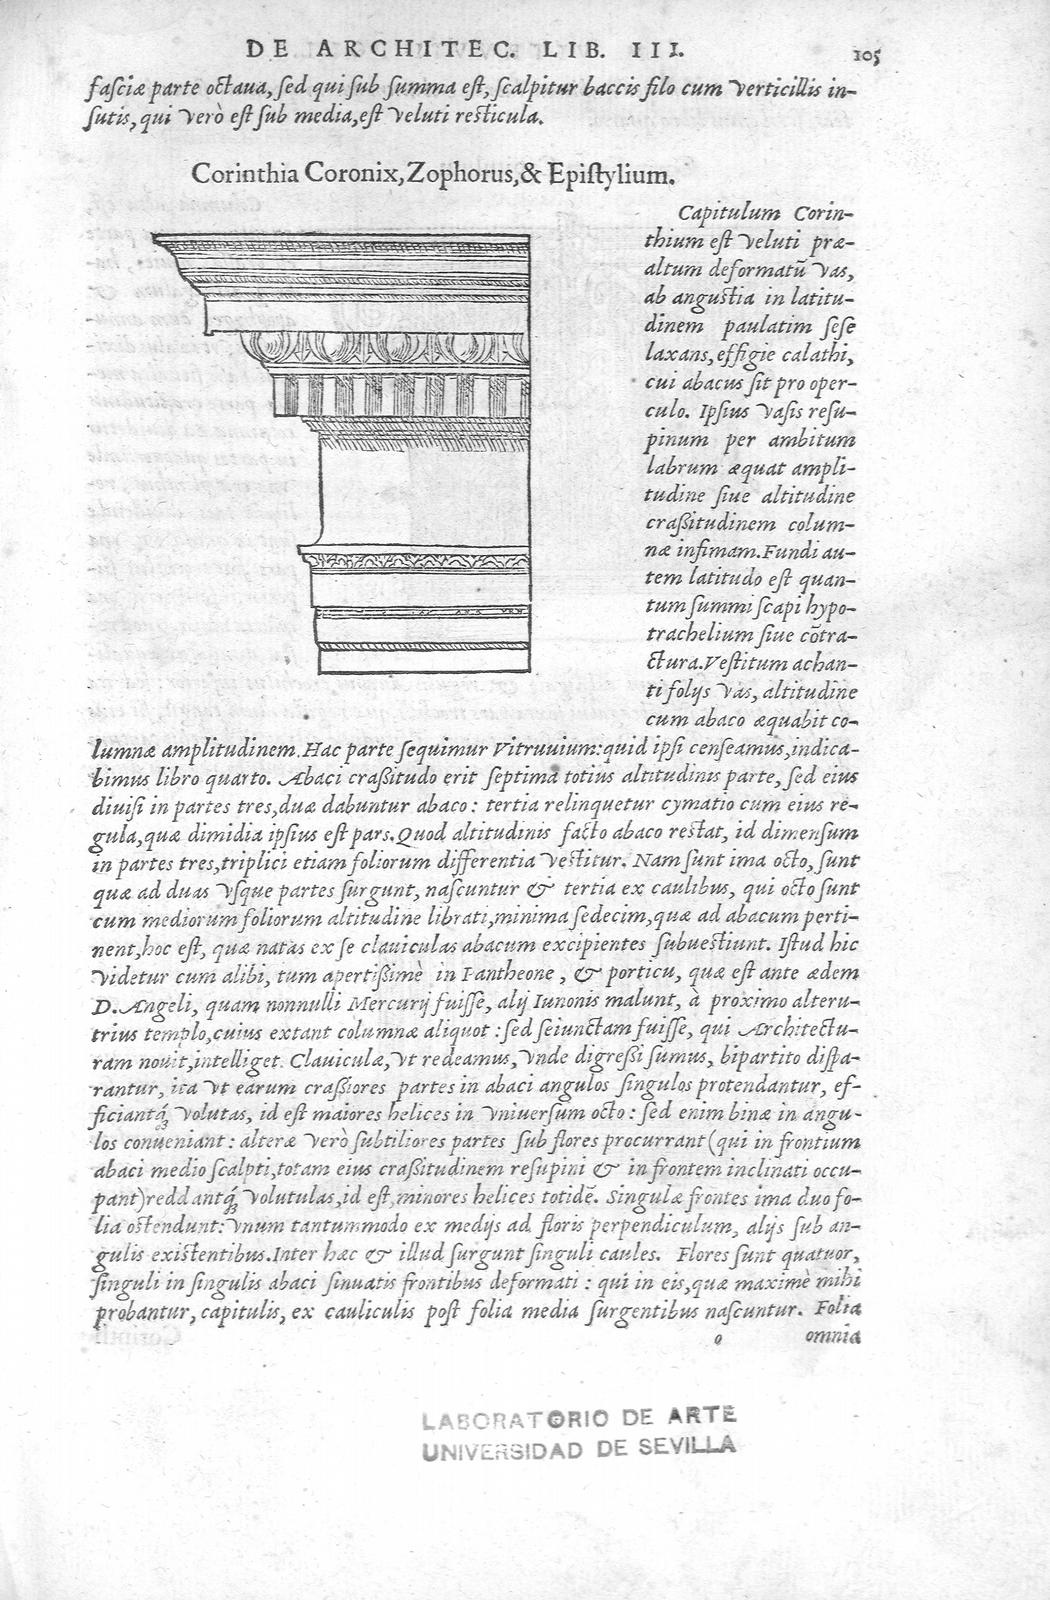 DE ARCHITEC. LIB. III. 105
fasciæ parte octaua, sed qui sub summa est, scalpitur baccis filo cum verticillis in-
sutis, qui verò est sub media, est veluti resticula.
Corinthia Coronix, Zophorus, & Epistylium.
Capitulum Corin-
thium est veluti præ-
altum deformatũ vas,
ab angustia in latitu-
dinem paulatim sese
laxans, effigie calathi,
cui abacus sit pro oper-
culo. Ipsius vasis resu-
pinum per ambitum
labrum æquat ampli-
tudine siue altitudine
craßitudinem colum-
næ infimam. Fundi au-
tem latitudo est quan-
tum summi scapi hypo-
trachelium siue cõtra-
ctura. Vestitum achan-
ti folijs vas, altitudine
cum abaco æquabit co-
lumnæ amplitudinem. Hac parte sequimur Vitruuium: quid ipsi censeamus, indica-
bimus libro quarto. Abaci craßitudo erit septima totius altitudinis parte, sed eius
diuisi in partes tres, duæ dabuntur abaco: tertia relinquetur cymatio cum eius re-
gula, quæ dimidia ipsius est pars. Quod altitudinis facto abaco restat, id dimensum
in partes tres, triplici etiam foliorum differentia vestitur. Nam sunt ima octo, sunt
quæ ad duas vsque partes surgunt, nascuntur & tertia ex caulibus, qui octo sunt
cum mediorum foliorum altitudine librati, minima sedecim, quæ ad abacum perti-
nent, hoc est, quæ natas ex se clauiculas abacum excipientes subuestiunt. Istud hic
videtur cum alibi, tum apertißimè in Pantheone, & porticu, quæ est ante ædem
D. Angeli, quam nonnulli Mercurij fuisse, alij Iunonis malunt, à proximo alteru-
trius templo, cuius extant columnæ aliquot: sed seiunctam fuisse, qui Architectu-
ram nouit, intelliget. Clauiculæ, vt redeamus, vnde digressi sumus, bipartito dispa-
rantur, ita vt earum craßiores partes in abaci angulos singulos protendantur, ef-
ficiantq́; volutas, id est maiores helices in vniuersum octo: sed enim binæ in angu-
los conueniant: alteræ verò subtiliores partes sub flores procurrant (qui in frontium
abaci medio scalpti, totam eius craßitudinem resupini & in frontem inclinati occu-
pant) reddantq́; volutulas, id est, minores helices totidẽ. Singulæ frontes ima duo fo-
lia ostendunt: vnum tantummodo ex medijs ad floris perpendiculum, alijs sub an-
gulis existentibus. Inter hæc & illud surgunt singuli caules. Flores sunt quatuor,
singuli in singulis abaci sinuatis frontibus deformati: qui in eis, quæ maximè mihi
probantur, capitulis, ex cauliculis post folia media surgentibus nascuntur. Folia
o omnia
LABORATORIO DE ARTE
UNIVERSIDAD DE SEVILLA